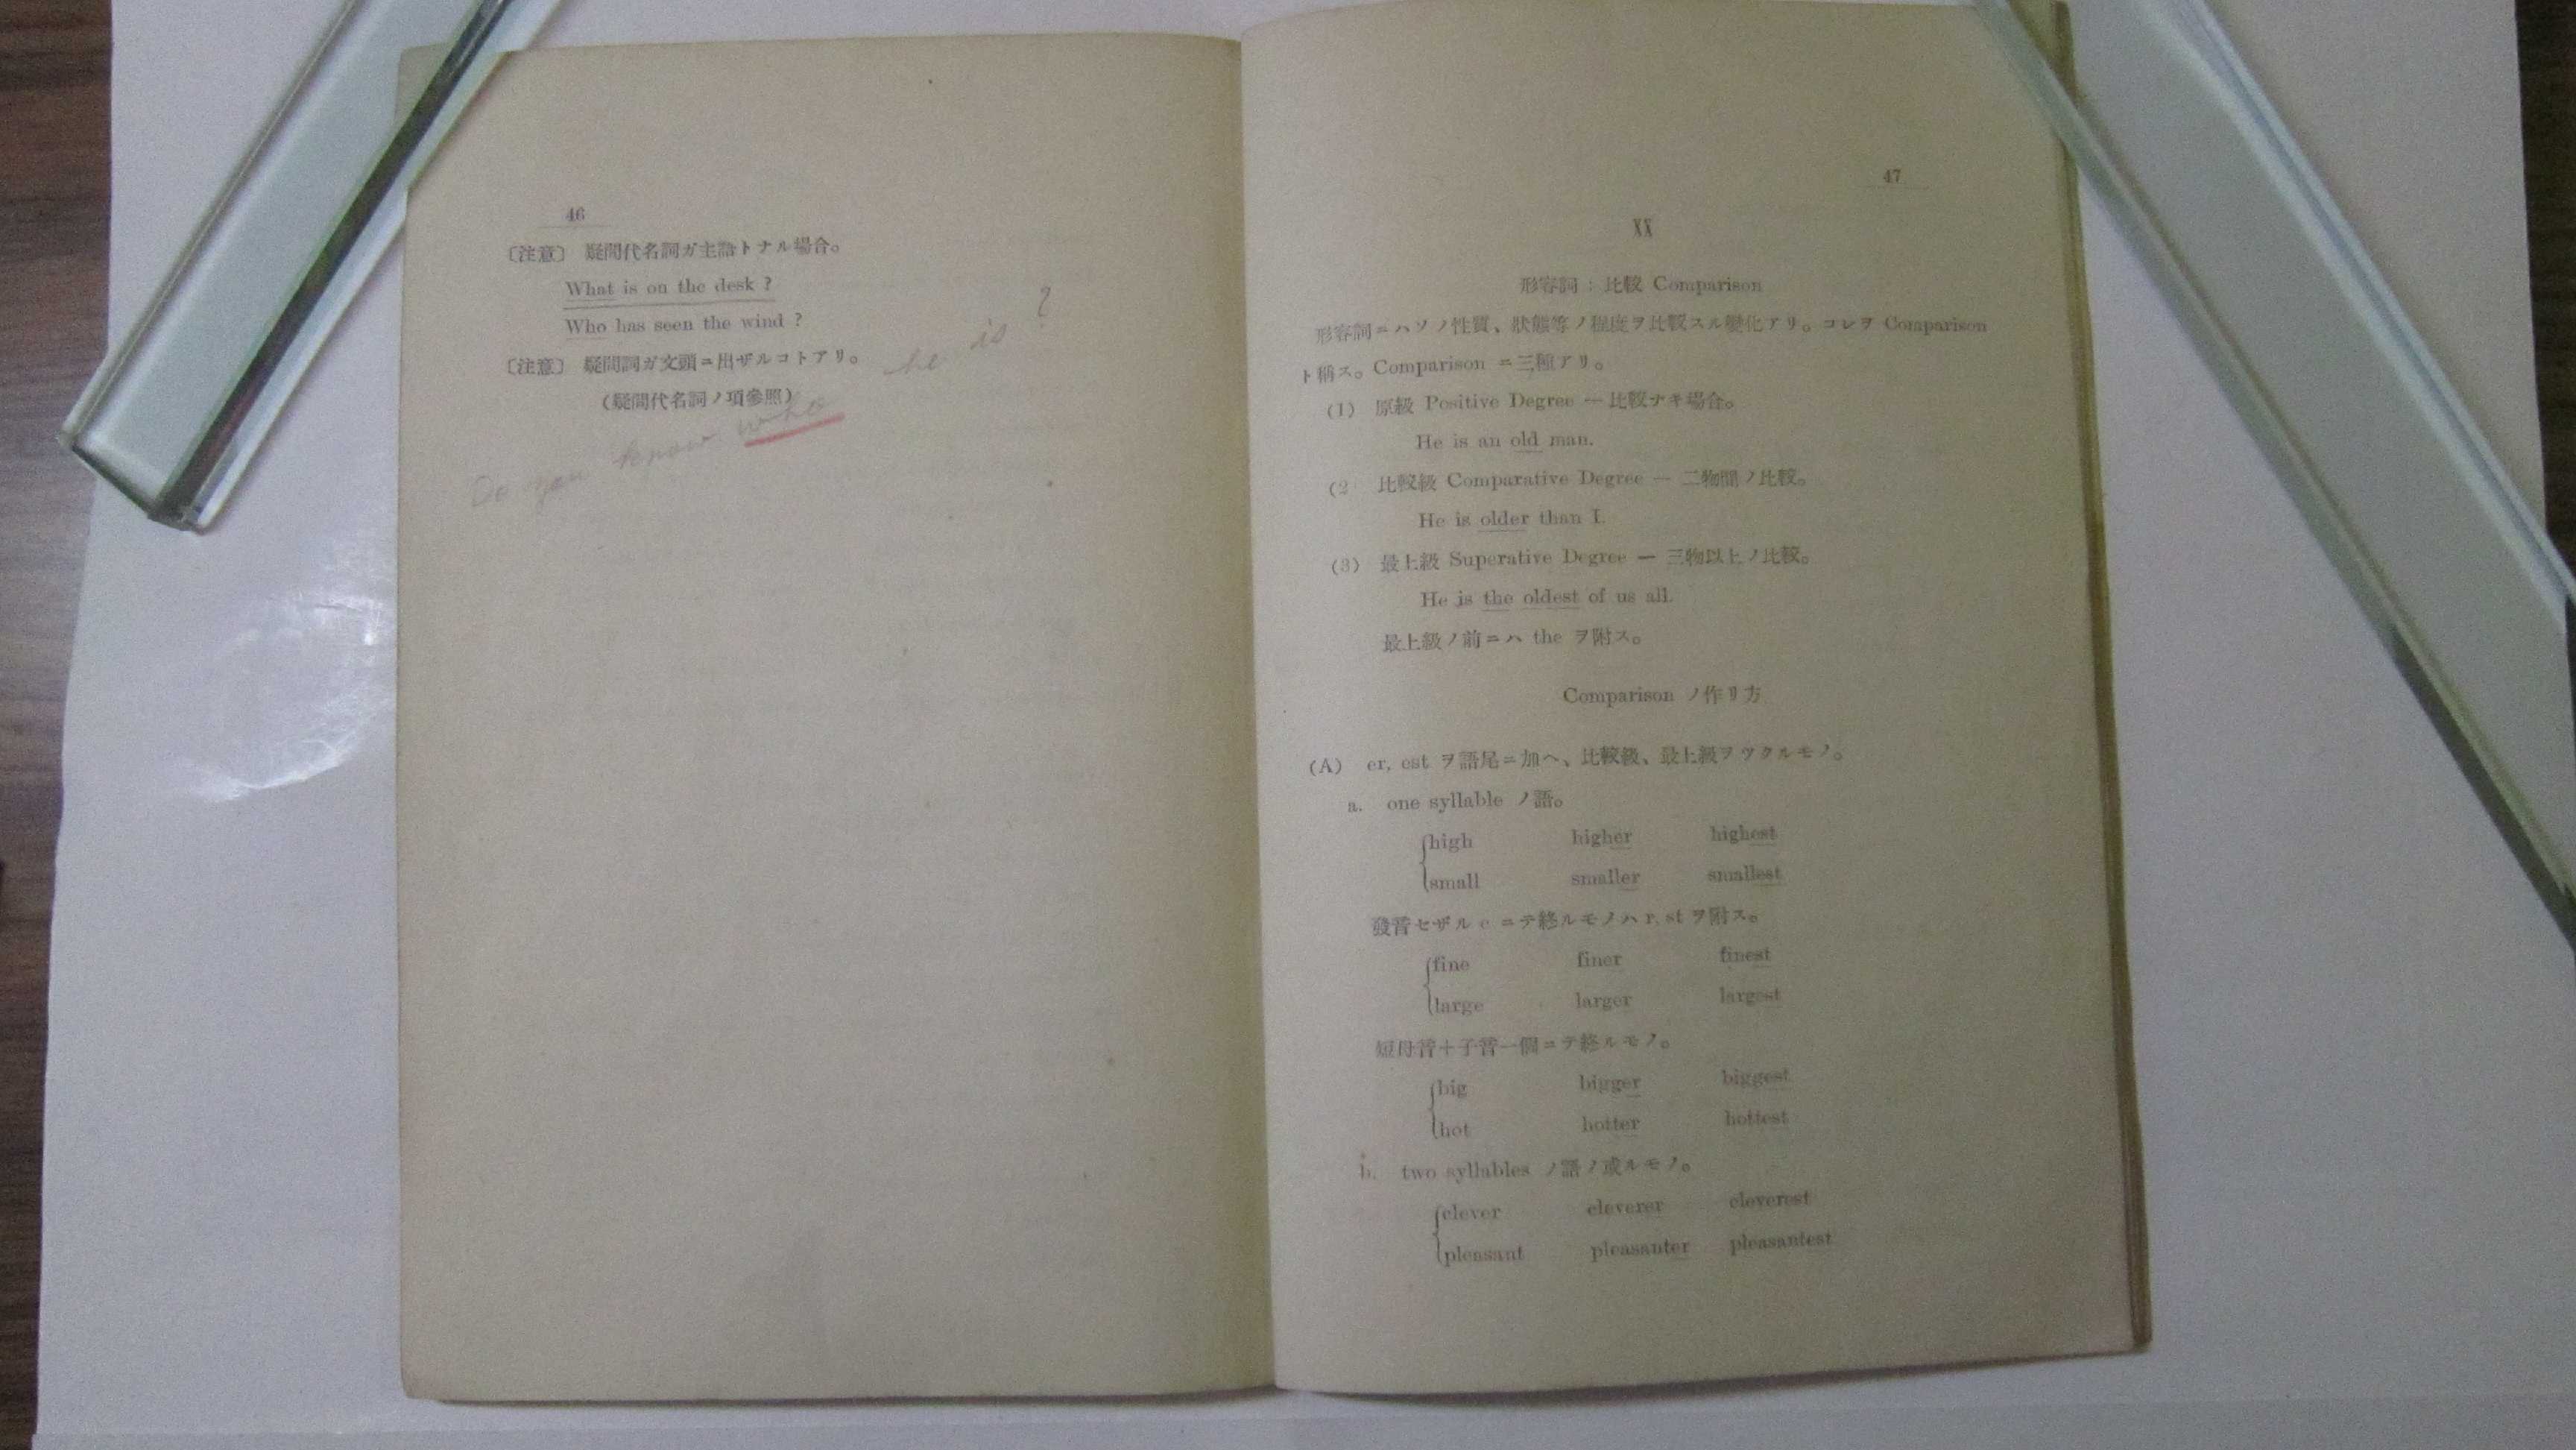 46
〔注意〕 疑問代名詞ガ主語トナル場合。
What is on the desk ?
Who has seen the wind ?
〔注意〕 疑問詞ガ文頭ニ出ザルコトアリ。
(疑問代名詞ノ項參照)
Do you know who he is ?
47
XX
形容詞 : 比較 Comparison
形容詞ニハソノ性質、狀態等ノ程度ヲ比較スル變化アリ。コレヲ Comparison
ト稱ス。Comparison ニ三種アリ。
(1) 原級 Positive Degree — 比較ナキ場合。
He is an old man.
(2 比較級 Comparative Degree — 二物間ノ比較。
He is older than I.
(3) 最上級 Superative Degree — 三物以上ノ比較。
He is the oldest of us all.
最上級ノ前ニハ the ヲ附ス。
Comparison ノ作リ方
(A) er, est ヲ語尾ニ加ヘ、比較級、最上級ヲツクルモノ。
a. one syllable ノ語。
high higher highest
small smaller smallest
發音セザル e ニテ終ルモノハ r, st ヲ附ス。
fine finer finest
large larger largest
短母音+子音一個ニテ終ルモノ。
big bigger biggest
hot hotter hottest
b. two syllables ノ語ノ或ルモノ。
clever cleverer cleverest
pleasant pleasanter pleasantest